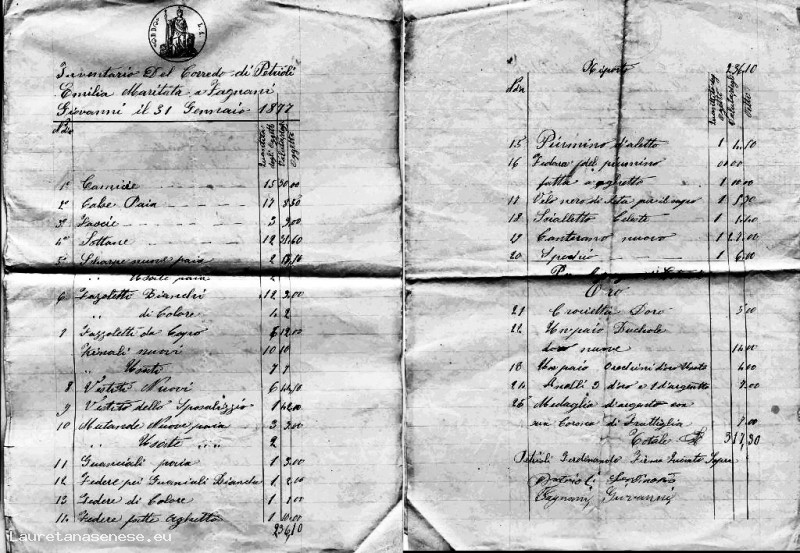 Inventario Del Corredo di Petrioli
Emilia Maritata a Fagnani
Giovanni il 31 Gennaio 1877
Quantita degli Ogetti
Oggetto
1º Camicie 15 30.00
2º Calse Paia 17 8.50
3º 3 3.00
4º Sottane 12 31.60
5º Sharpe nuove paia 2
" Usate paia 2
6 Fazzoletti Bianchi 12 3.00
" di Colore 4 2
7 Fazzoletti da Capo 6 12.00
Ghinali nuovi 10 10
" Usati 7 7
8 Vestiti Nuovi 6
9 Vestito dello Sposalizzio 1 42.00
10 Mutande Nuove paia 3 3.00
" Usate " " 2
11 Guanciali paia 1 3.00
12 Federe pei Guanciali Bianche 1 2.00
13 Federe di Colore 1 1.00
14 Federe fatte Aghetto 1 10.00
236,10
Riporto 236.10
Quantità degli Ogetti
15 Piumino d'aletto 1
16 Federa pel piumino
fatta a aghetto 1 10.00
17 Velo nero di seta per il capo 1 5.30
18 Scialletto Celeste 1
19 Canterano nuovo 1
20 Specchio 1 6.00
Oro
21 Crocietta Doro 5.00
22 Un paio Buchole
nuove 14.00
Un paio Orechini doro Usato 4.00
24 Anelli 3 d'oro e 1 d'argento 9.00
25 Medaglia d'argento con
una Corona di 9.00
Totale 317,30
Petrioli Ferdinando
Petrioli
Fagnani Giovanni
Lauretanasenese.eu